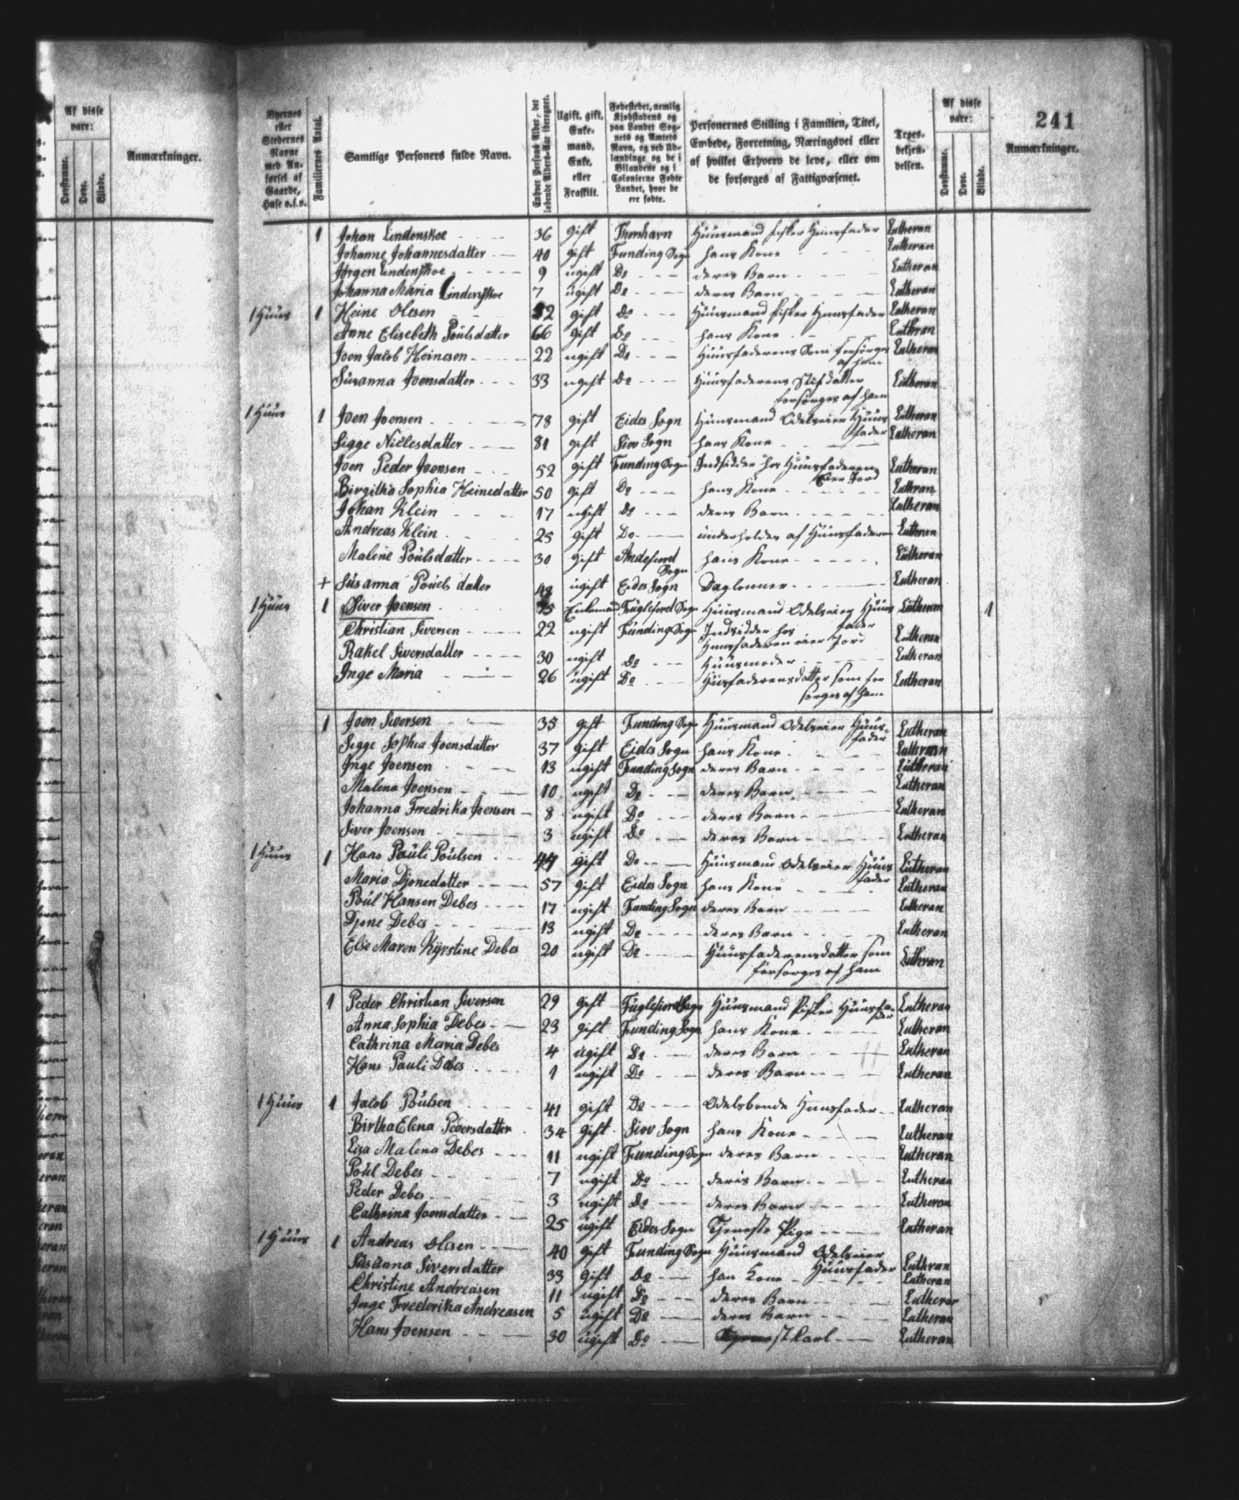 Af disse vare:
Anmærkninger.
Døvstumme.
Døve.
Blinde.
Byernes eller Stedernes Navne med Anførsel af Gaarde, Huse o.s.v.
Familiernes Antal.
Samtlige Personers fulde Navn.
Ugift, gift, Enkemand, Enke, eller Fraskilt.
Fødestedet, nemlig Kjøbstadens og paa Landet Sognets og Amtets Navn, og ved Udlændinge og de i Bilandene og i Colonierne Fødte Landet, hvor de ere fødte.
Personernes Stilling i Familien, Titel, Embede, Forretning, Næringsvei eller af hvilket Erhverv de leve, eller om de forsørges af Fattigvæsenet.
Troesbekjendelsen.
Af disse vare:
Døvstumme.
Døve.
Blinde.
241
Anmærkninger.
1 Johan Lindenskoe 36 gift Thorshavn Huusmand fisker Huusfader Lutheran
Johanne Johannesdatter 40 gift Funding Sogn hans Kone Lutheran
Jørgen Lindenskoe 9 ugift Do deres Barn Lutheran
Johanna Maria Lindenskoe 7 ugift Do deres Barn Lutheran
1 Huus 1 Heine Olesen gift Do Huusmand fisker Huusfader Lutheran
Anne Elisebeth Poulsdatter 66 gift Do hans Kone Lutheran
Joen Jacob Heinesen 22 ugift Do Huusfaderens Søn forsørges af ham Lutheran
Susanna Joensdatter 33 ugift Do Huusfaderens Stifdatter forsørges af ham Lutheran
1 Huus 1 Joen Joensen 78 gift Eides Sogn Huusmand Odelseier Huusfader Lutheran
Sigge Niclesdatter 81 gift Siov Sogn hans Kone Lutheran
Joen Peder Joensen 52 gift Funding Sogn Indsidder hos Huusfaderen Lutheran
Birgitha Sophia Heinesdatter 50 gift Do hans Kone Lutheran
Johan Klein 17 ugift Do deres Barn Lutheran
Andreas Klein 25 gift Do underholdes af Huusfaderen Lutheran
Malene Poulsdatter 30 gift Andefiord Sogn hans Kone Lutheran
+ Susanna Pouels datter ugift Eides Sogn Daglønner Lutheran
1 Huus 1 Siver Joensen Enkemand Fuglefiord Sogn Huusmand Odelseier Huusfader Lutheran 1
Christian Siversen 22 ugift Funding Sogn Indsidder hos Huusfaderen eier Jord Lutheran
Rakel Siversdatter 30 ugift Do Huusmoder Lutheran
Inge Maria 26 ugift Do Huusfaderens datter som forsørges af ham Lutheran
1 Joen Siversen 35 gift Funding Sogn Huusmand Odelseier Huusfader Lutheran
Sigge Sophia Joensdatter 37 gift Eides Sogn hans Kone Lutheran
Inge Joensen 13 ugift Funding Sogn deres Barn Lutheran
Malena Joensen 10 ugift Do deres Barn Lutheran
Johanna Fredrika Joensen 8 ugift Do deres Barn Lutheran
Siver Joensen 3 ugift Do deres Barn Lutheran
1 Huus 1 Hans Pauli Poulsen 44 gift Do Huusmand Odelseier Huusfader Lutheran
Maria Djonedatter 57 gift Eides Sogn hans Kone Lutheran
Poul Hansen Debes 17 ugift Funding Sogn deres Barn Lutheran
Djone Debes 13 ugift Do deres Barn Lutheran
Else Maren Kyrstine Debes 20 ugift Do Huusfaderens datter som forsørges af ham Lutheran
1 Peder Christian Siversen 29 gift Fuglefiord Sogn Huusmand Fisker Huusfader Lutheran
Anna Sophia Debes 23 gift Funding Sogn hans Kone Lutheran
Cathrina Maria Debes 4 ugift Do deres Barn Lutheran
Hans Pauli Debes 1 ugift Do deres Barn Lutheran
1 Huus 1 Jacob Poulsen 41 gift Do Odelsbonde Huusfader Lutheran
Birtha Elena Pedersdatter 34 gift Siov Sogn hans Kone Lutheran
Lisa Malena Debes 11 ugift Funding Sogn deres Barn Lutheran
Poul Debes 7 ugift Do deres Barn Lutheran
Peder Debes 3 ugift Do deres Barn Lutheran
Cathrina Joensdatter 25 ugift Eides Sogn Tjeneste Pige Lutheran
1 Huus 1 Andreas Olesen 40 gift Funding Sogn Huusmand Odelseier Huusfader Lutheran
Susanna Siversdatter 33 gift Do hans Kone Lutheran
Christine Andreasen 11 ugift Do deres Barn Lutheran
Inge Frederika Andreasen 5 ugift Do deres Barn Lutheran
Hans Joensen 30 ugift Do Lutheran